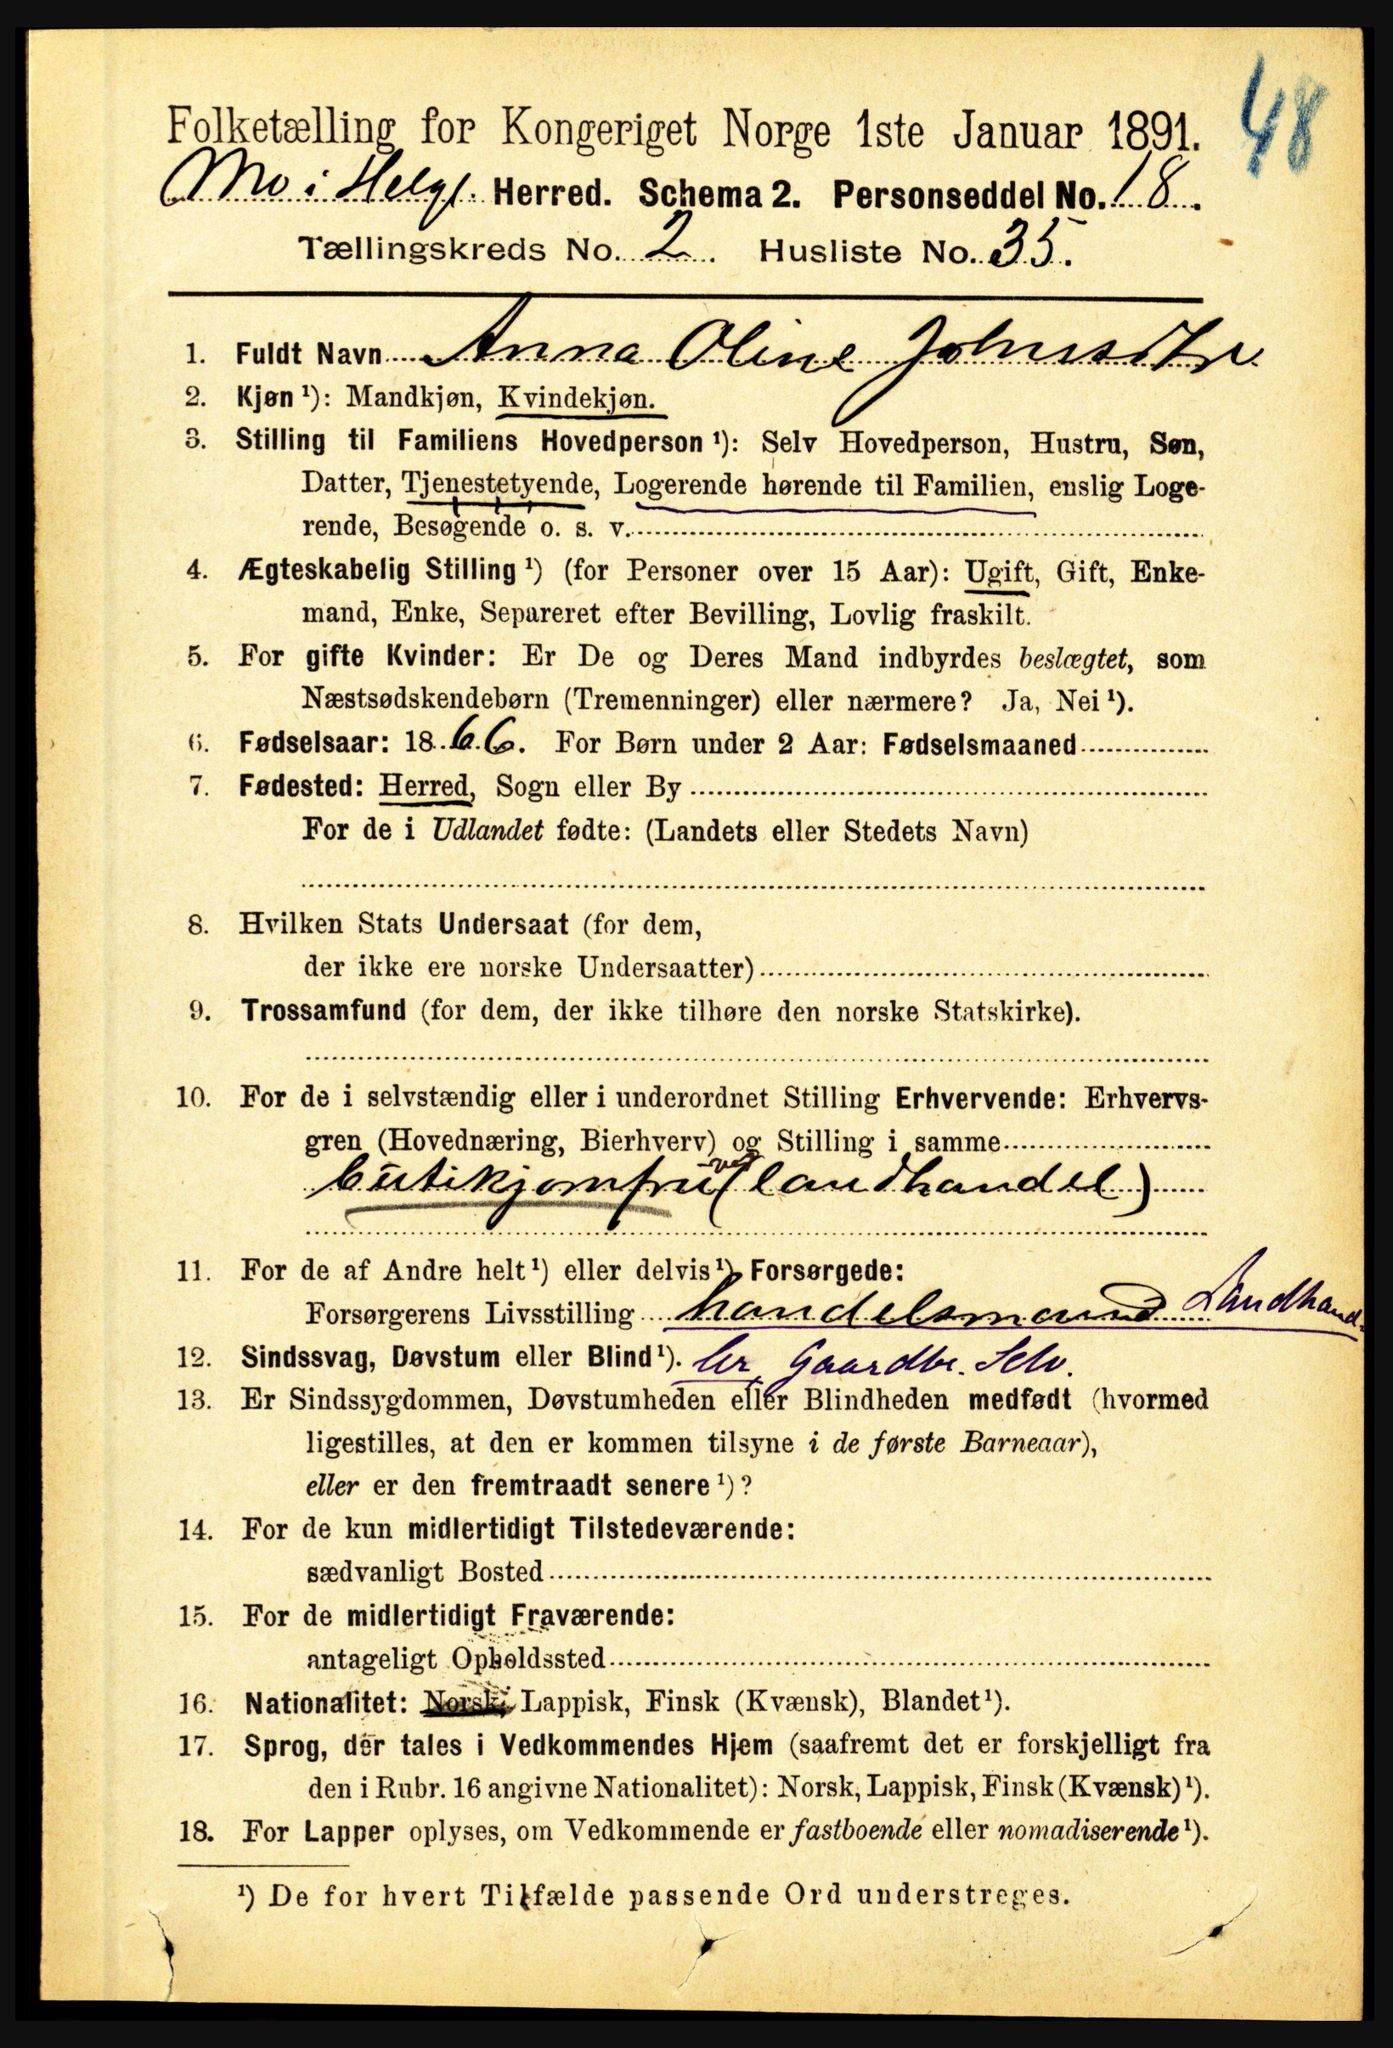 48
Folketælling for Kongeriget Norge 1ste Januar 1891.
Mo i Helgl. Herred. Schema 2. Personseddel No. 18.
Tællingskreds No. 2. Husliste No. 35.
1. Fuldt Navn Anna Oline Johnsdtr
2. Kjøn ¹): Mandkjøn, Kvindekjøn.
3. Stilling til Familiens Hovedperson ¹): Selv Hovedperson, Hustru, Søn,
Datter, Tjenestetyende, Logerende hørende til Familien, enslig Loge-
rende, Besøgende o. s. v.
4. Ægteskabelig Stilling ¹) (for Personer over 15 Aar): Ugift, Gift, Enke-
mand, Enke, Separeret efter Bevilling, Lovlig fraskilt.
5. For gifte Kvinder: Er De og Deres Mand indbyrdes beslægtet, som
Næstsødskendebørn (Tremenninger) eller nærmere? Ja, Nei ¹).
6. Fødselsaar: 1866. For Børn under 2 Aar: Fødselsmaaned
7. Fødested: Herred, Sogn eller By
For de i Udlandet fødte: (Landets eller Stedets Navn)
8. Hvilken Stats Undersaat (for dem,
der ikke ere norske Undersaatter)
9. Trossamfund (for dem, der ikke tilhøre den norske Statskirke).
10. For de i selvstændig eller i underordnet Stilling Erhvervende: Erhvervs-
gren (Hovednæring, Bierhverv) og Stilling i samme
butikjomfru (ved landhandel)
11. For de af Andre helt ¹) eller delvis ¹) Forsørgede:
Forsørgerens Livsstilling handelsmand Landhand-
12. Sindssvag, Døvstum eller Blind ¹). ler, Gaardbr. Selv.
13. Er Sindssygdommen, Døvstumheden eller Blindheden medfødt (hvormed
ligestilles, at den er kommen tilsyne i de første Barneaar),
eller er den fremtraadt senere ¹)?
14. For de kun midlertidigt Tilstedeværende:
sædvanligt Bosted
15. For de midlertidigt Fraværende:
antageligt Opholdssted
16. Nationalitet: Norsk, Lappisk, Finsk (Kvænsk), Blandet ¹).
17. Sprog, der tales i Vedkommendes Hjem (saafremt det er forskjelligt fra
den i Rubr. 16 angivne Nationalitet): Norsk, Lappisk, Finsk (Kvænsk) ¹).
18. For Lapper oplyses, om Vedkommende er fastboende eller nomadiserende ¹).
¹) De for hvert Tilfælde passende Ord understreges.